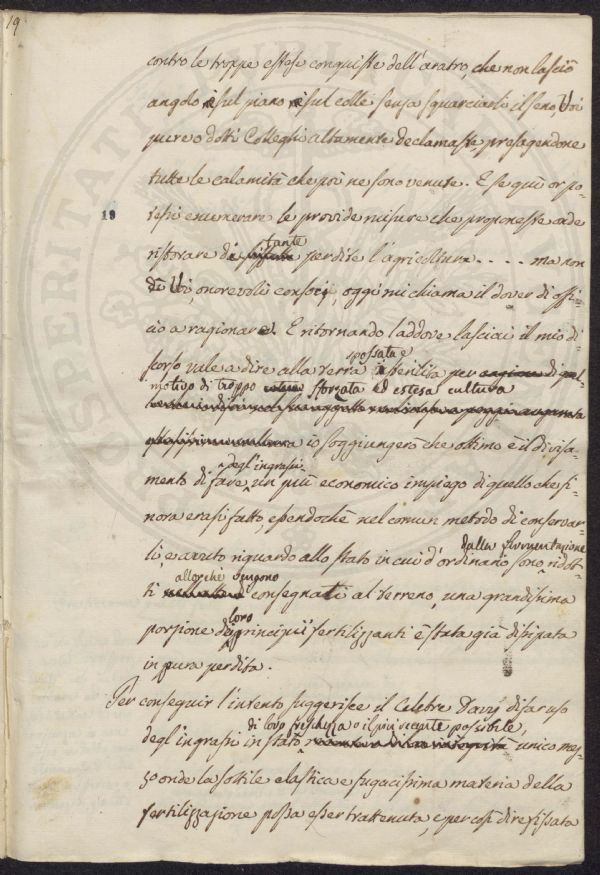 19
contro le troppe estese conquiste dell'aratro, che non lasciò
angolo e sul piano e sul colle senza squarciarli il seno, Voi
pure o dotti Colleghi altamente declamaste, presagendone
tutte le calamità che poi ne sono venute. E se quì or po-
tessi enumerare le provide misure che proponeste onde
19
tante
ristorare di perdite l'agricoltura . . . . . ma non
di Voi, onorevoli consocj, oggi mi chiama il dover di offi-
cio a ragionare. E ritornando laddove lasciai il mio di-
spossata e
scorso vale a dire alla terra isterilita per cagione di
motivo di troppo sforzata ed estesa cultura
io soggiungerò che ottimo è il divisa-
degl'ingrassi
mento di fare, un più economico impiego di quello che fi-
nora erasi fatto, essendochè nel comun metodo di conservar-
dalla fermentazione
li, e avuto riguardo allo stato in cui d'ordinario sono, ridot-
allorchè vengono
ti consegnati al terreno, una grandissima
loro
porzione dei principii fertilizzanti è stata già dissipata
in pura perdita.
Per conseguir l'intento suggerisce il Celebre Davy di far uso
di loro freschezza o il più recente possibile,
degl'ingrassi in stato unico mez-
zo onde la sottile elastica e fugacissima materia della
fertilizzazione possa esser trattenuta, e per così dire fissata